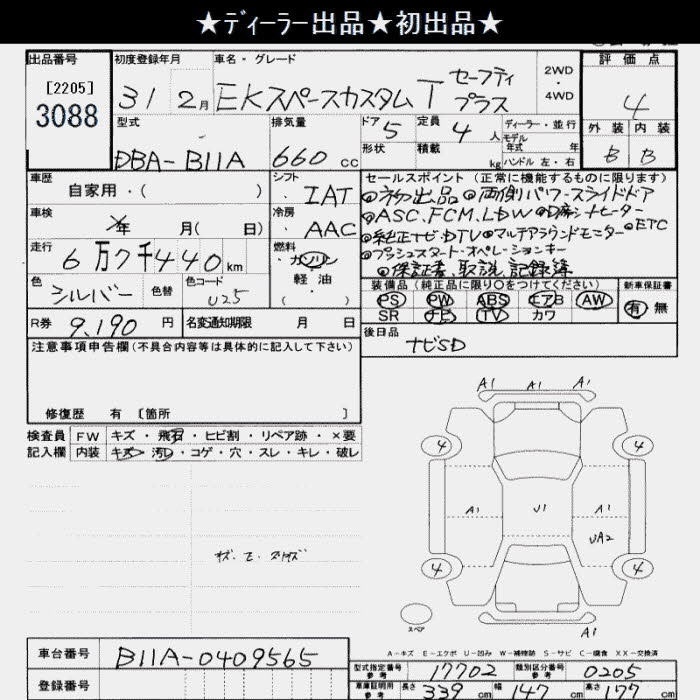 ★ディーラー出品★初出品★
出品番号
[2205]
3088
初度登録年月
31 2月
車名・グレード
EKスペースカスタム T セーフティプラス
2WD
・
4WD
評価点
4
外装 内装
B B
型式
DBA-B11A
排気量
660 cc
ドア 5
形状
定員 4 人
積載 kg
ディーラー・並行
モデル年式 年
ハンドル 左・右
車歴
自家用・( )
シフト
IAT
冷房
AAC
車検
年 月( 日)
走行
6万7千440km
燃料
ガソリン
軽油
( )
色
シルバー
色替
色コード
U25
R券
9,190 円
名変通知期限 月 日
セールスポイント(正常に機能するものに限ります)
◎初出品 ◎両側パワースライドドア
◎ASC.FCM.LDW ◎D席シートヒーター
◎純正ナビ・DTV ◎マルチアラウンドモニター ◎ETC
◎プッシュスタート・オペレーションキー
◎保証書、取説、記録簿
装備品(純正品に限り○をつけてください)
PS PW ABS エアB AW
SR ナビ TV カワ
新車保証書
有 無
後日品
ナビSD
注意事項申告欄(不具合内容等は具体的に記入して下さい)
修復歴 有 〔箇所 〕
検査員記入欄
FW キズ・飛石・ヒビ割・リペア跡・×要
内装 キズ・汚れ・コゲ・穴・スレ・キレ・破レ
A1 A1 A1
4 4
A1 U1 A1
UA2
4 4
スペア
A1
A-キズ E-エクボ U-凹み W-補修跡 S-サビ C-腐食 XX-交換済
車台番号
B11A-0409565
登録番号
型式指定番号 参考 17702
類別区分番号 参考 0205
車庫証明用 参考 長さ 339 cm 幅 147 cm 高さ 177 cm